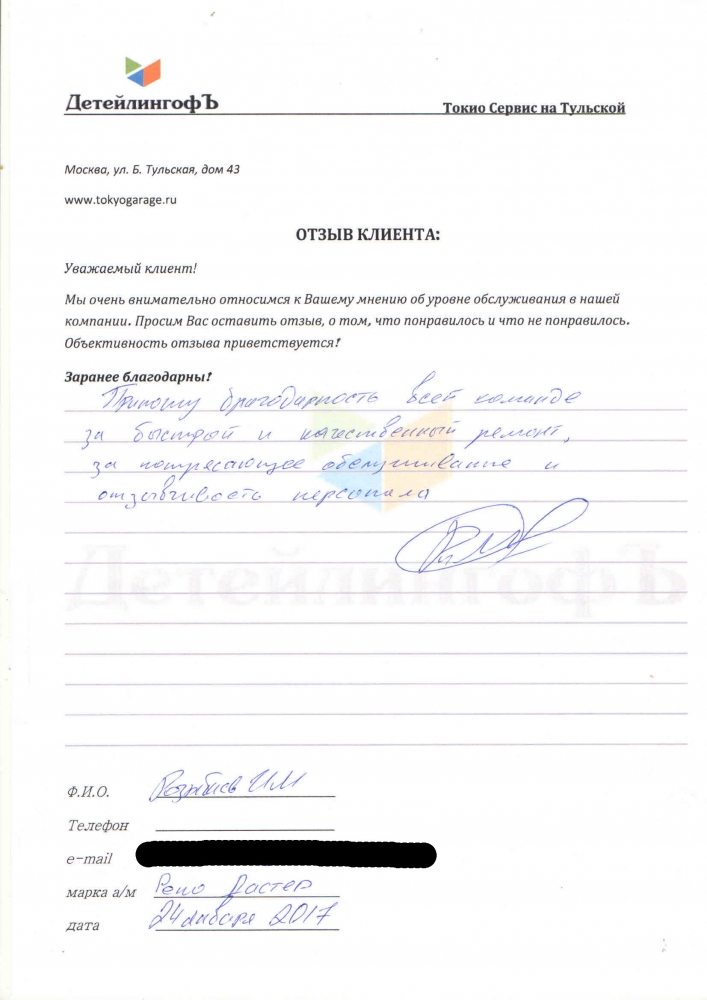 ДетейлингофЪ
Токио Сервис на Тульской
Москва, ул. Б. Тульская, дом 43
www.tokyogarage.ru
ОТЗЫВ КЛИЕНТА:
Уважаемый клиент!
Мы очень внимательно относимся к Вашему мнению об уровне обслуживания в нашей
компании. Просим Вас оставить отзыв, о том, что понравилось и что не понравилось.
Объективность отзыва приветствуется!
Заранее благодарны!
Приношу благодарность всей команде
за быстрый и качественный ремонт,
за потрясающее обслуживание и
отзывчивость персонала
ДетейлингофЪ
Ф.И.О. И М
Телефон
e-mail
марка а/м Рено Дастер
дата 24 января 2017